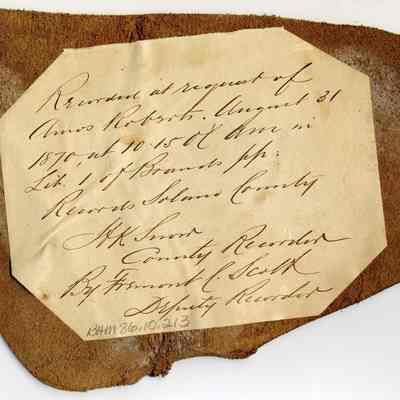 Recorded at request of
Amos Roberts. August 31
1870, at 10.15 O'C Am in
Lib. 1 of Brands pp.
Records Solano County
H K Snow
County Recorder
By Fremont C Scott
Deputy Recorder
BHM 86.10.213